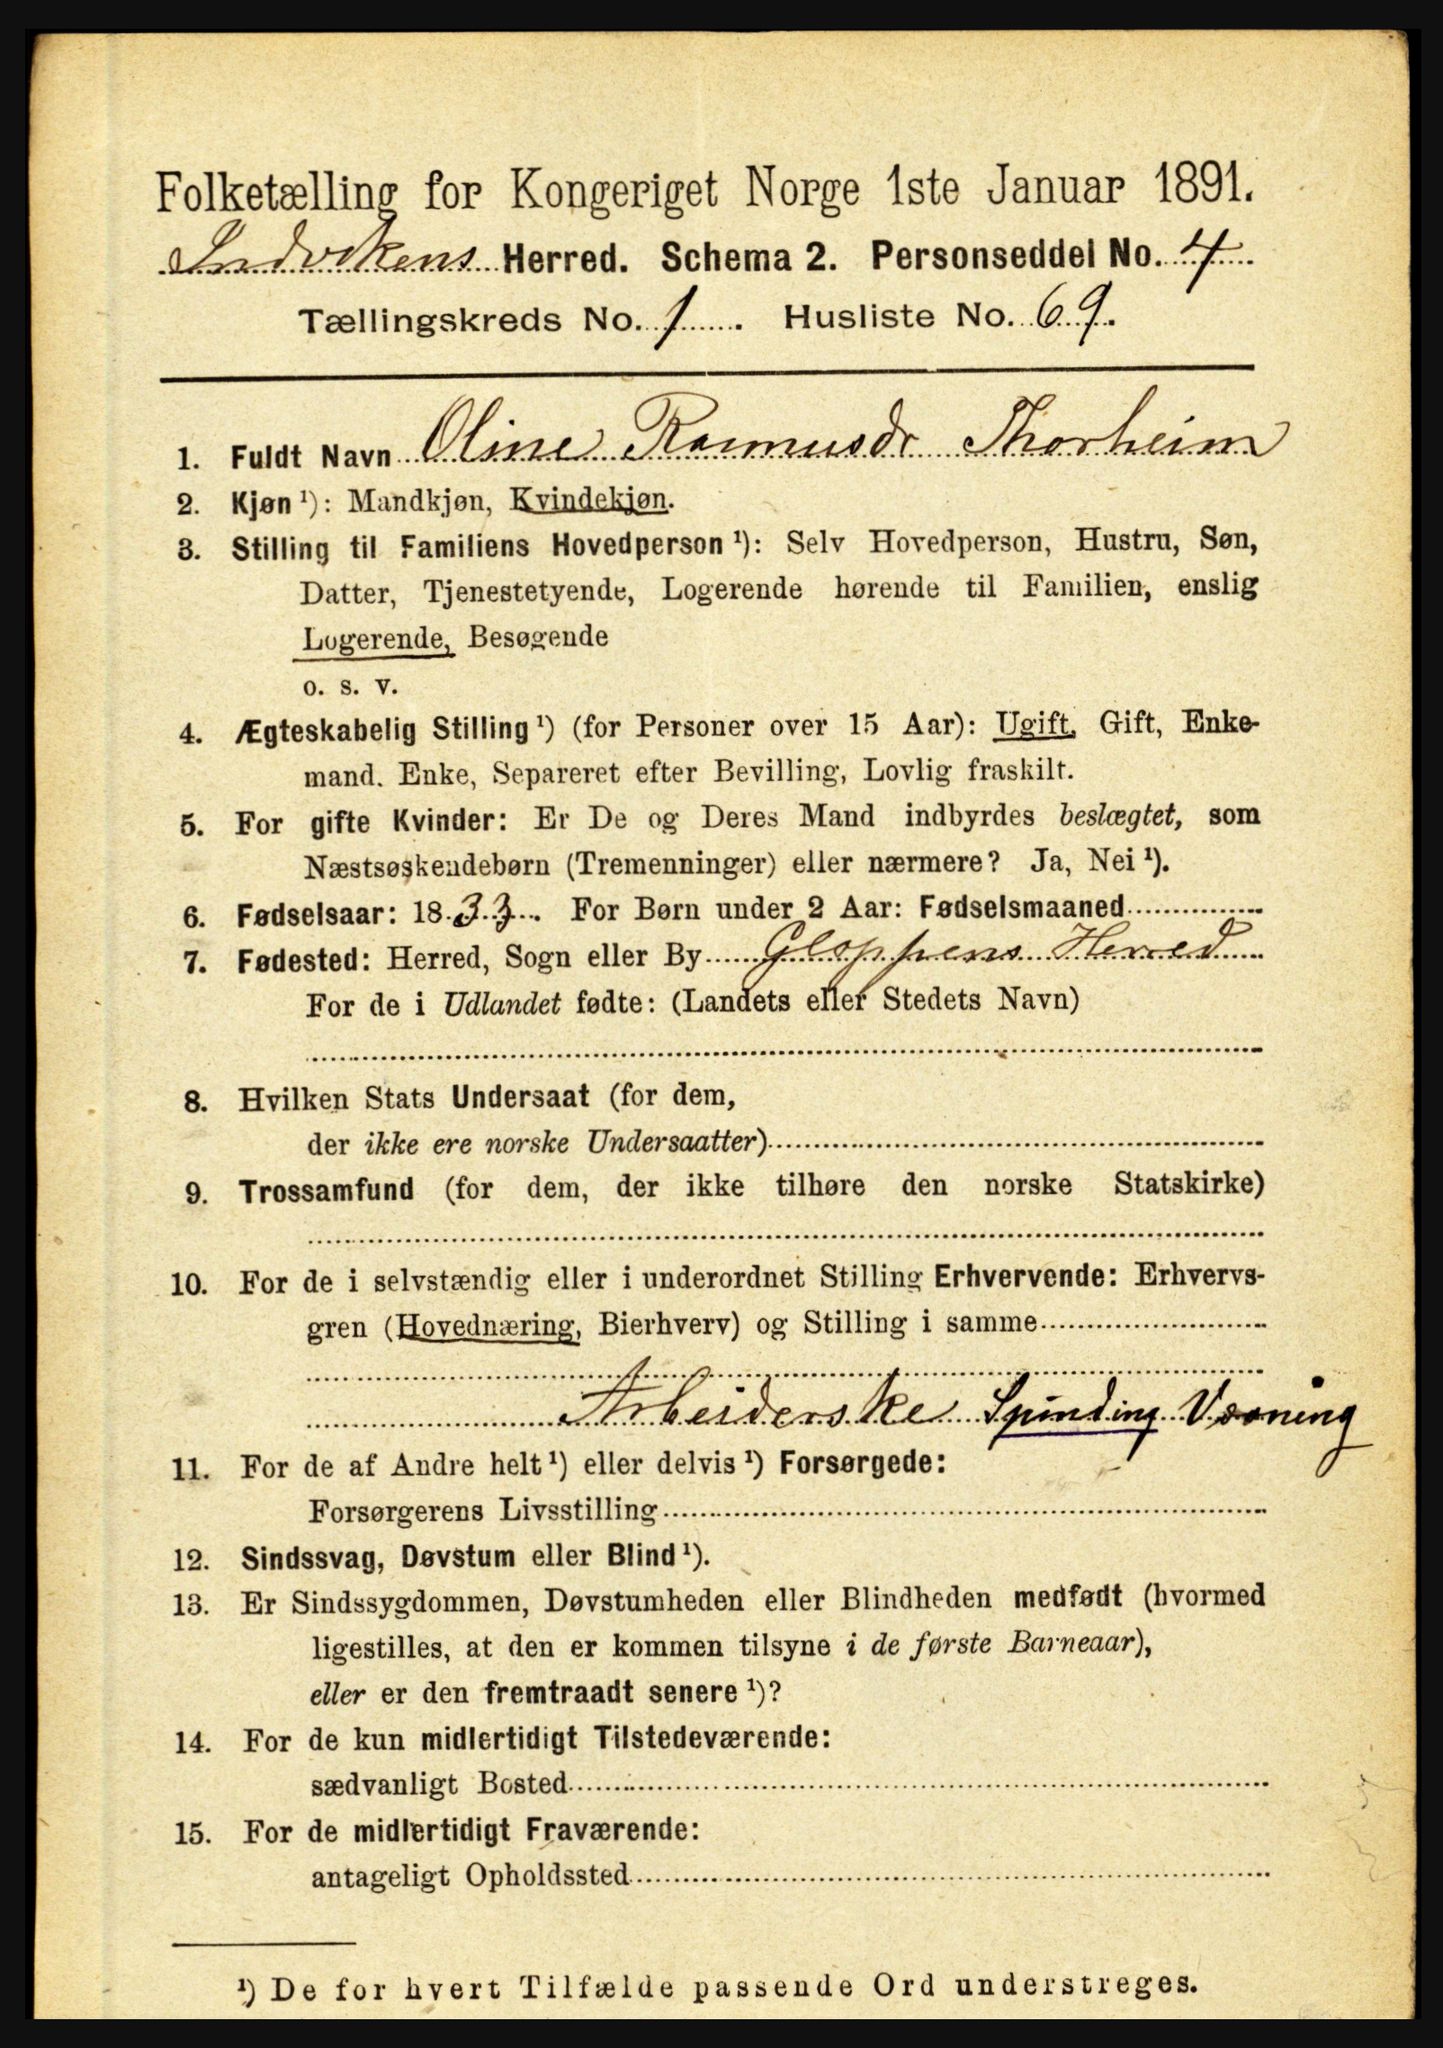 Folketælling for Kongeriget Norge 1ste Januar 1891.
Indvikens Herred. Schema 2. Personseddel No. 4
Tællingskreds No. 1. Husliste No. 69.
1. Fuldt Navn Oline Rasmusdr Thorheim
2. Kjøn ¹): Mandkjøn, Kvindekjøn.
3. Stilling til Familiens Hovedperson ¹): Selv Hovedperson, Hustru, Søn,
Datter, Tjenestetyende, Logerende hørende til Familien, enslig
Logerende, Besøgende
o. s. v.
4. Ægteskabelig Stilling ¹) (for Personer over 15 Aar): Ugift, Gift, Enke-
mand. Enke, Separeret efter Bevilling, Lovlig fraskilt.
5. For gifte Kvinder: Er De og Deres Mand indbyrdes beslægtet, som
Næstsøskendebørn (Tremenninger) eller nærmere? Ja, Nei ¹).
6. Fødselsaar: 1833. For Børn under 2 Aar: Fødselsmaaned
7. Fødested: Herred, Sogn eller By Gloppens Herred
For de i Udlandet fødte: (Landets eller Stedets Navn)
8. Hvilken Stats Undersaat (for dem,
der ikke ere norske Undersaatter)
9. Trossamfund (for dem, der ikke tilhøre den norske Statskirke)
10. For de i selvstændig eller i underordnet Stilling Erhvervende: Erhvervs-
gren (Hovednæring, Bierhverv) og Stilling i samme
Arbeiderske Spinding Vævning
11. For de af Andre helt ¹) eller delvis ¹) Forsørgede:
Forsørgerens Livsstilling
12. Sindssvag, Døvstum eller Blind ¹).
13. Er Sindssygdommen, Døvstumheden eller Blindheden medfødt (hvormed
ligestilles, at den er kommen tilsyne i de første Barneaar),
eller er den fremtraadt senere ¹)?
14. For de kun midlertidigt Tilstedeværende:
sædvanligt Bosted
15. For de midlertidigt Fraværende:
antageligt Opholdssted
¹) De for hvert Tilfælde passende Ord understreges.